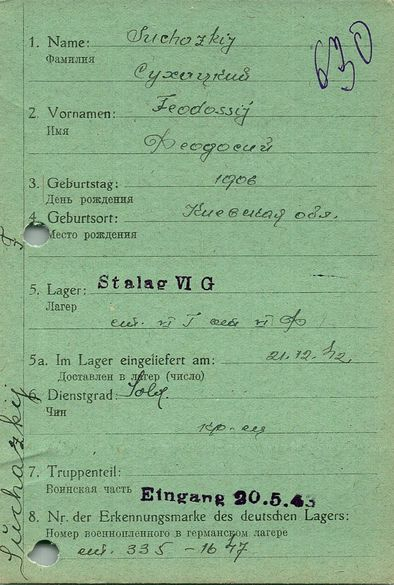 630
1. Name: Suchazkij
Фамилия
Сухацкий
2. Vornamen: Feodossij
Имя
Феодосий
3. Geburtstag: 1906
День рождения
4. Geburtsort: Киевская обл.
Место рождения
5. Lager: Stalag VI G
Лагерь
шт. VI
5a. Im Lager eingeliefert am: 21.12.42
Доставлен в лагер (число)
6. Dienstgrad: Sold.
Чин
кр-ец
7. Truppenteil:
Воинская часть
Eingang 20.5.43
8. Nr. der Erkennungsmarke des deutschen Lagers:
Номер военнопленного в германском лагере
шт. 335 - 1647
Suchazkij F